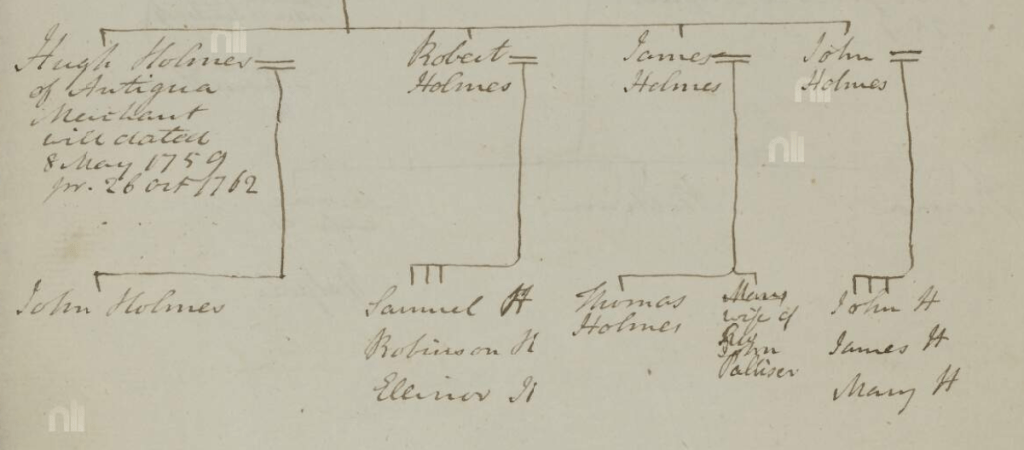 Hugh Holmes
of Antigua
Merchant
will dated
8 May 1759
pr. 26 Oct 1762
Robert
Holmes
James
Holmes
John
Holmes
John Holmes
Samuel H
Robinson H
Ellinor H
Thomas
Holmes
Mary
wife of
John
Palliser
John H
James H
Mary H
nli
nli
nli
nli